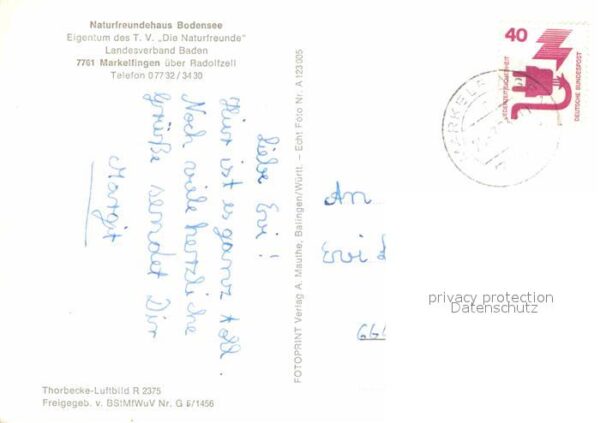 Naturfreundehaus Bodensee
Eigentum des T. V. „Die Naturfreunde"
Landesverband Baden
7761 Markelfingen über Radolfzell
Telefon 07732/3430
Liebe Evi!
Hier ist es ganz toll.
Noch viele herzliche
Grüße sendet Dir
Margit
FOTOPRINT Verlag A. Mauthe, Balingen/Württ. – Echt Foto Nr. A 123 005
40
JEDERZEIT SICHERHEIT
DEUTSCHE BUNDESPOST
MARKELF
An
Evi
666
privacy protection
Datenschutz
Thorbecke-Luftbild R 2375
Freigegeb. v. BStMfWuV Nr. G 5/1456